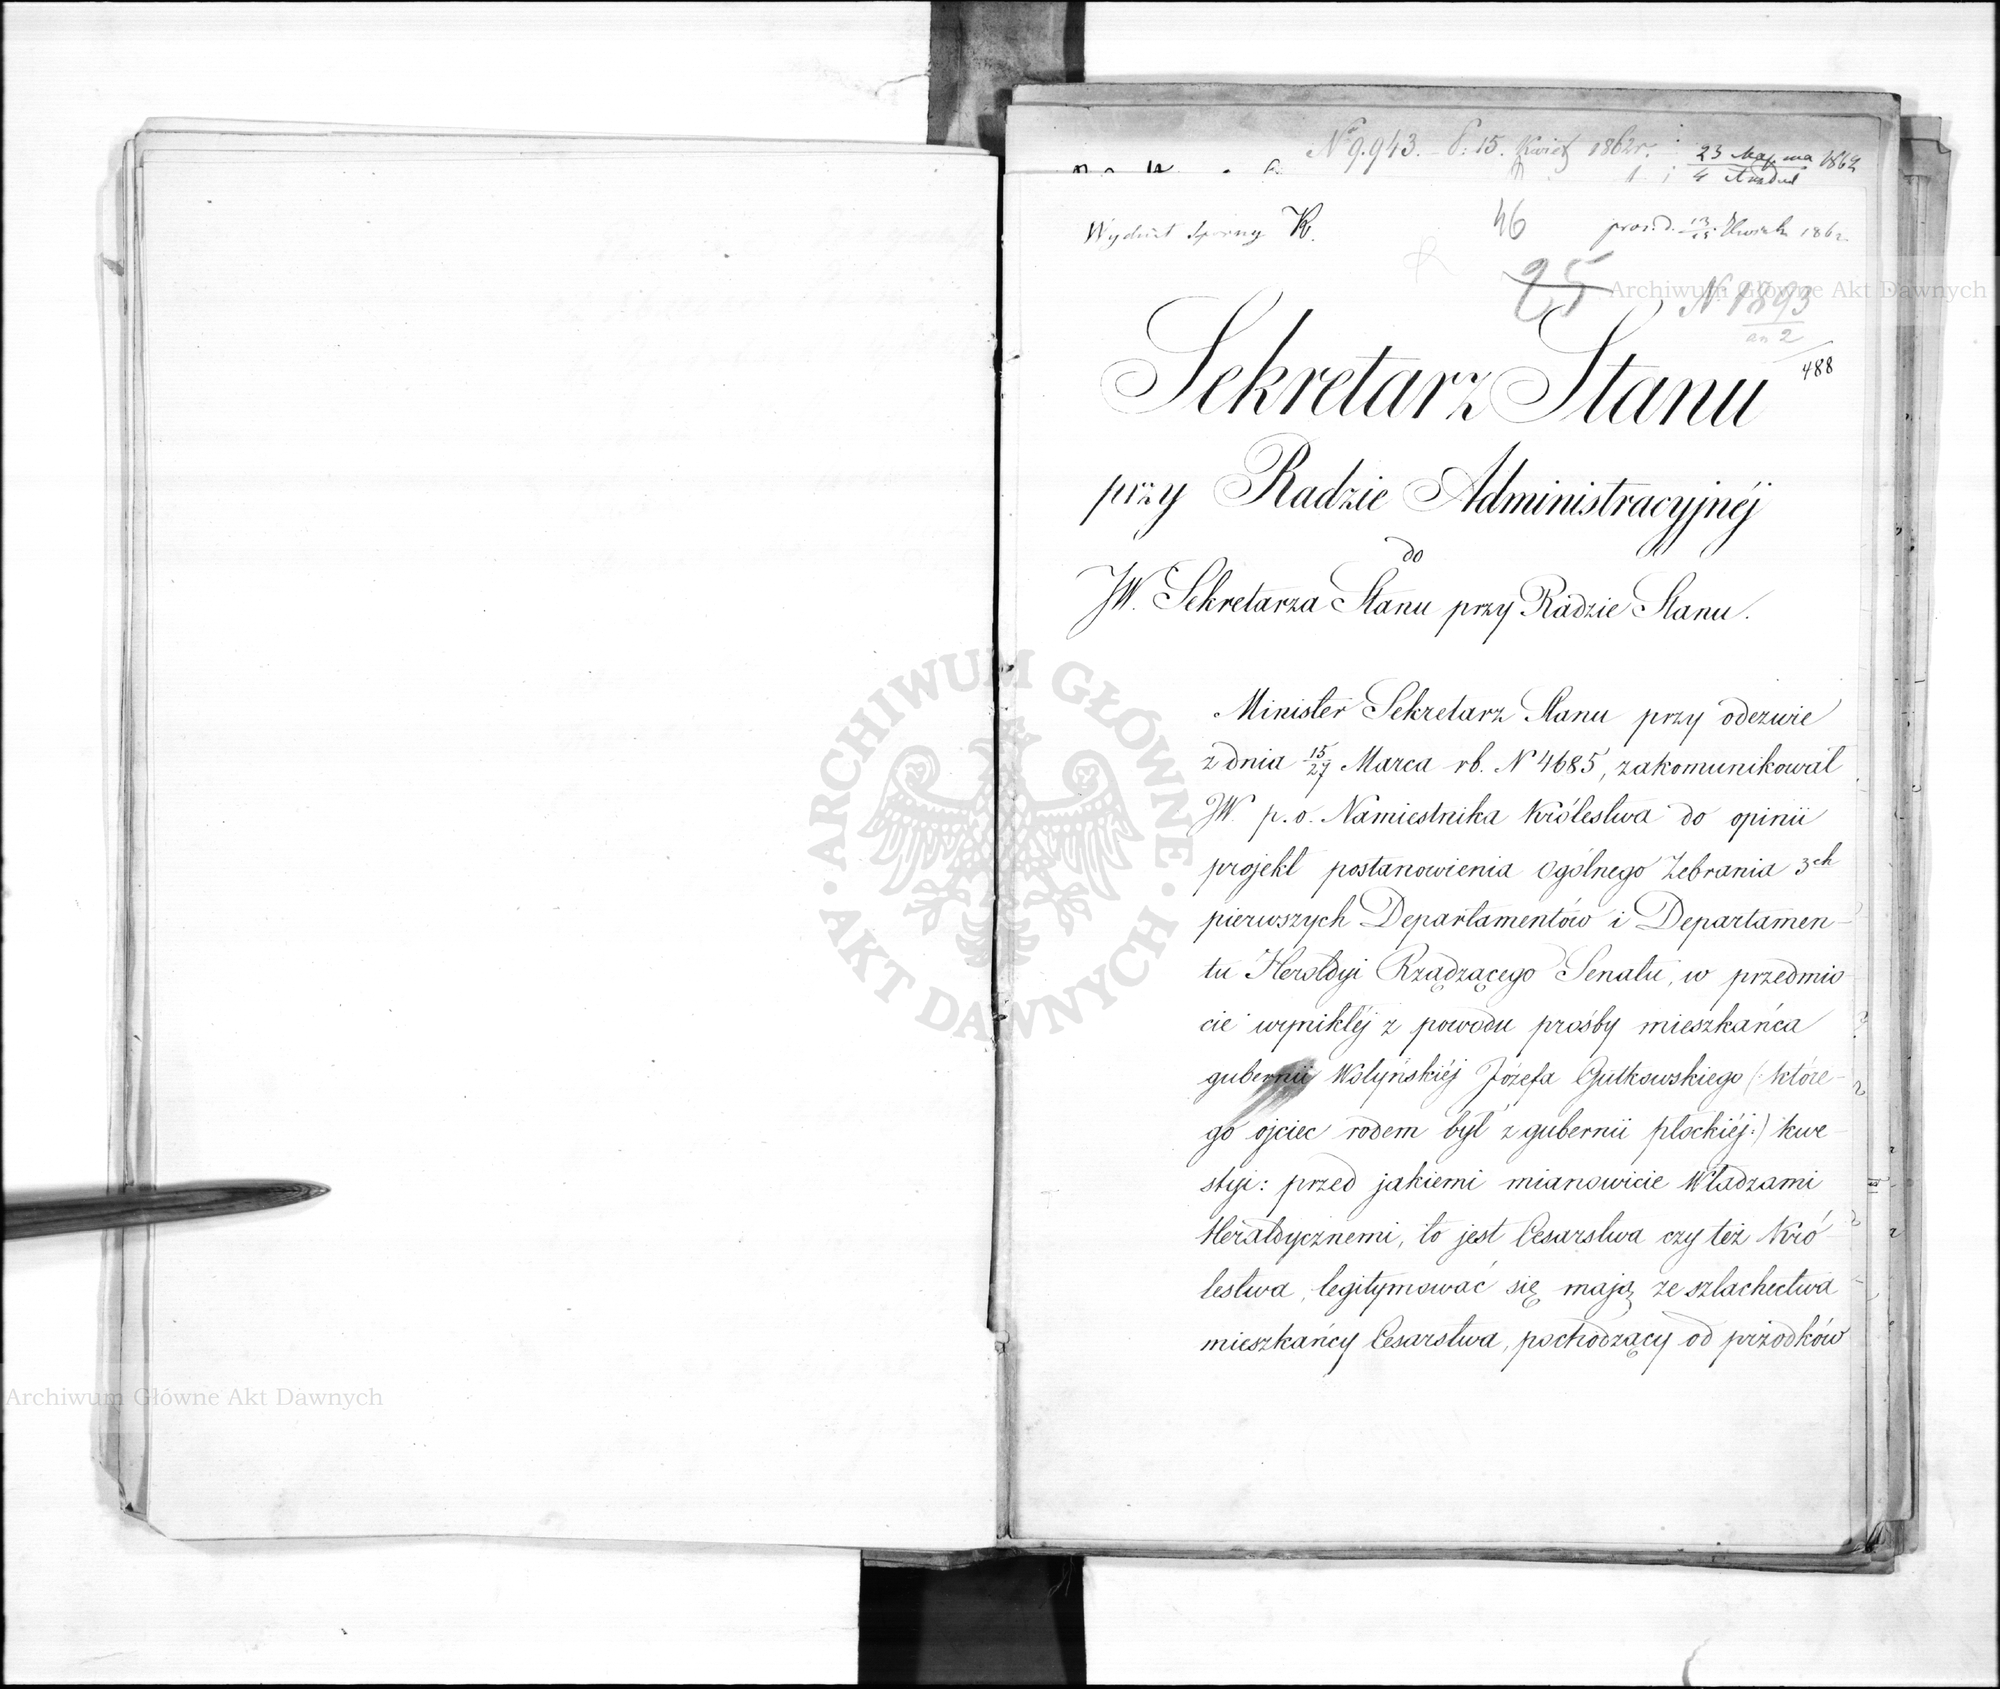 Nº 9.943. d: 15. Kwiet 1862 r.
23 1862
4
Wydział Sporny K.
46
25
Nº 1893
an 2
488
Sekretarz Stanu
przy Radzie Administracyjnéj
do
JW. Sekretarza Stanu przy Radzie Stanu.
Minister Sekretarz Stanu przy odezwie
z dnia 15/27 Marca rb. N 4685, zakomunikował
JW. p.o. Namiestnika Królestwa do opinii
projekt postanowienia Ogólnego Zebrania 3ch
pierwszych Departamentów i Departamen-
tu Heroldyi Rządzącego Senatu, w przedmio-
cie wynikłéj z powodu prośby mieszkańca
gubernii Wołyńskiéj Józefa Gutkowskiego (: które-
go ojciec rodem był z gubernii płockiéj :) kwe-
styi: przed jakiemi mianowicie Władzami
Heraldycznemi, to jest Cesarstwa czy też Kró-
lestwa, legitymować się mają ze szlachectwa
mieszkańcy Cesarstwa, pochodzący od przodków
Archiwum Główne Akt Dawnych
Archiwum Główne Akt Dawnych
ARCHIWUM GŁÓWNE · AKT DAWNYCH ·